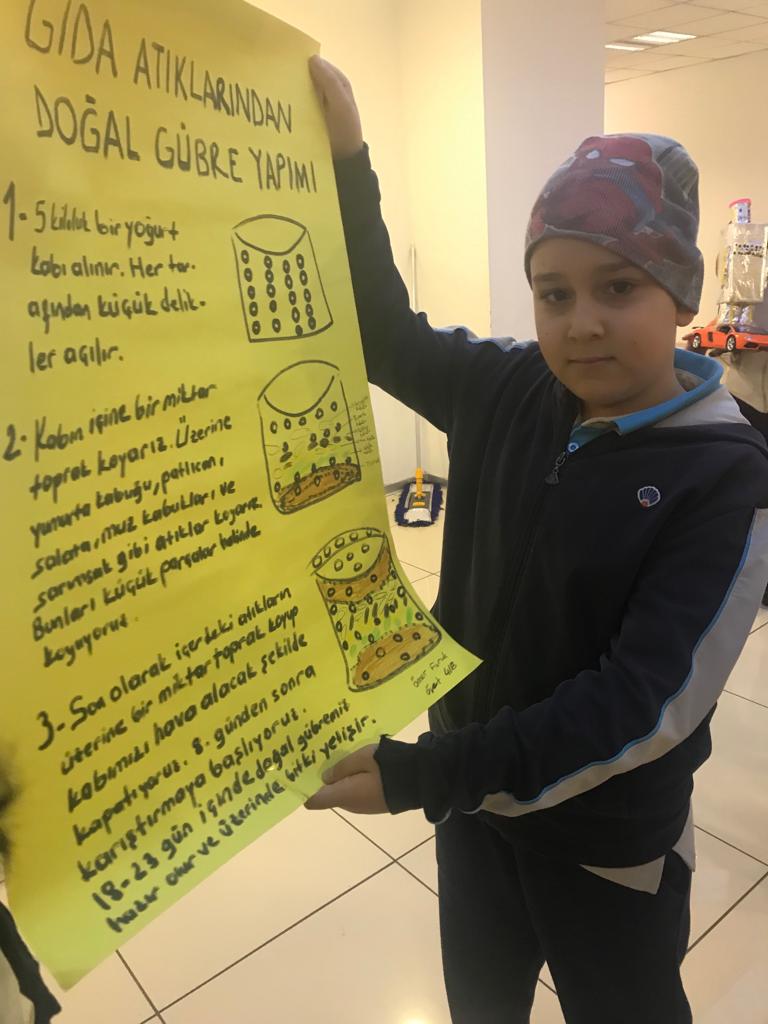 GIDA ATIKLARINDAN
DOĞAL GÜBRE YAPIMI
1- 5 kiloluk bir yoğurt
kabı alınır. Her tar-
afından küçük delik-
ler açılır.
2- Kabın içine bir miktar
toprak koyarız. Üzerine
yumurta kabuğu, patlıcan,
salata, muz kabukları ve
sarımsak gibi atıklar koyarız.
Bunları küçük parçalar halinde
koyuyoruz.
3- Son olarak içerdeki atıkların
üzerine bir miktar toprak koyup
kabımızı hava alacak şekilde
kapatıyoruz. 8. günden sonra
karıştırmaya başlıyoruz.
18-23 gün içinde doğal gübremiz
hazır olur ve üzerinde bitki yetişir.
Ömer Faruk
4/B